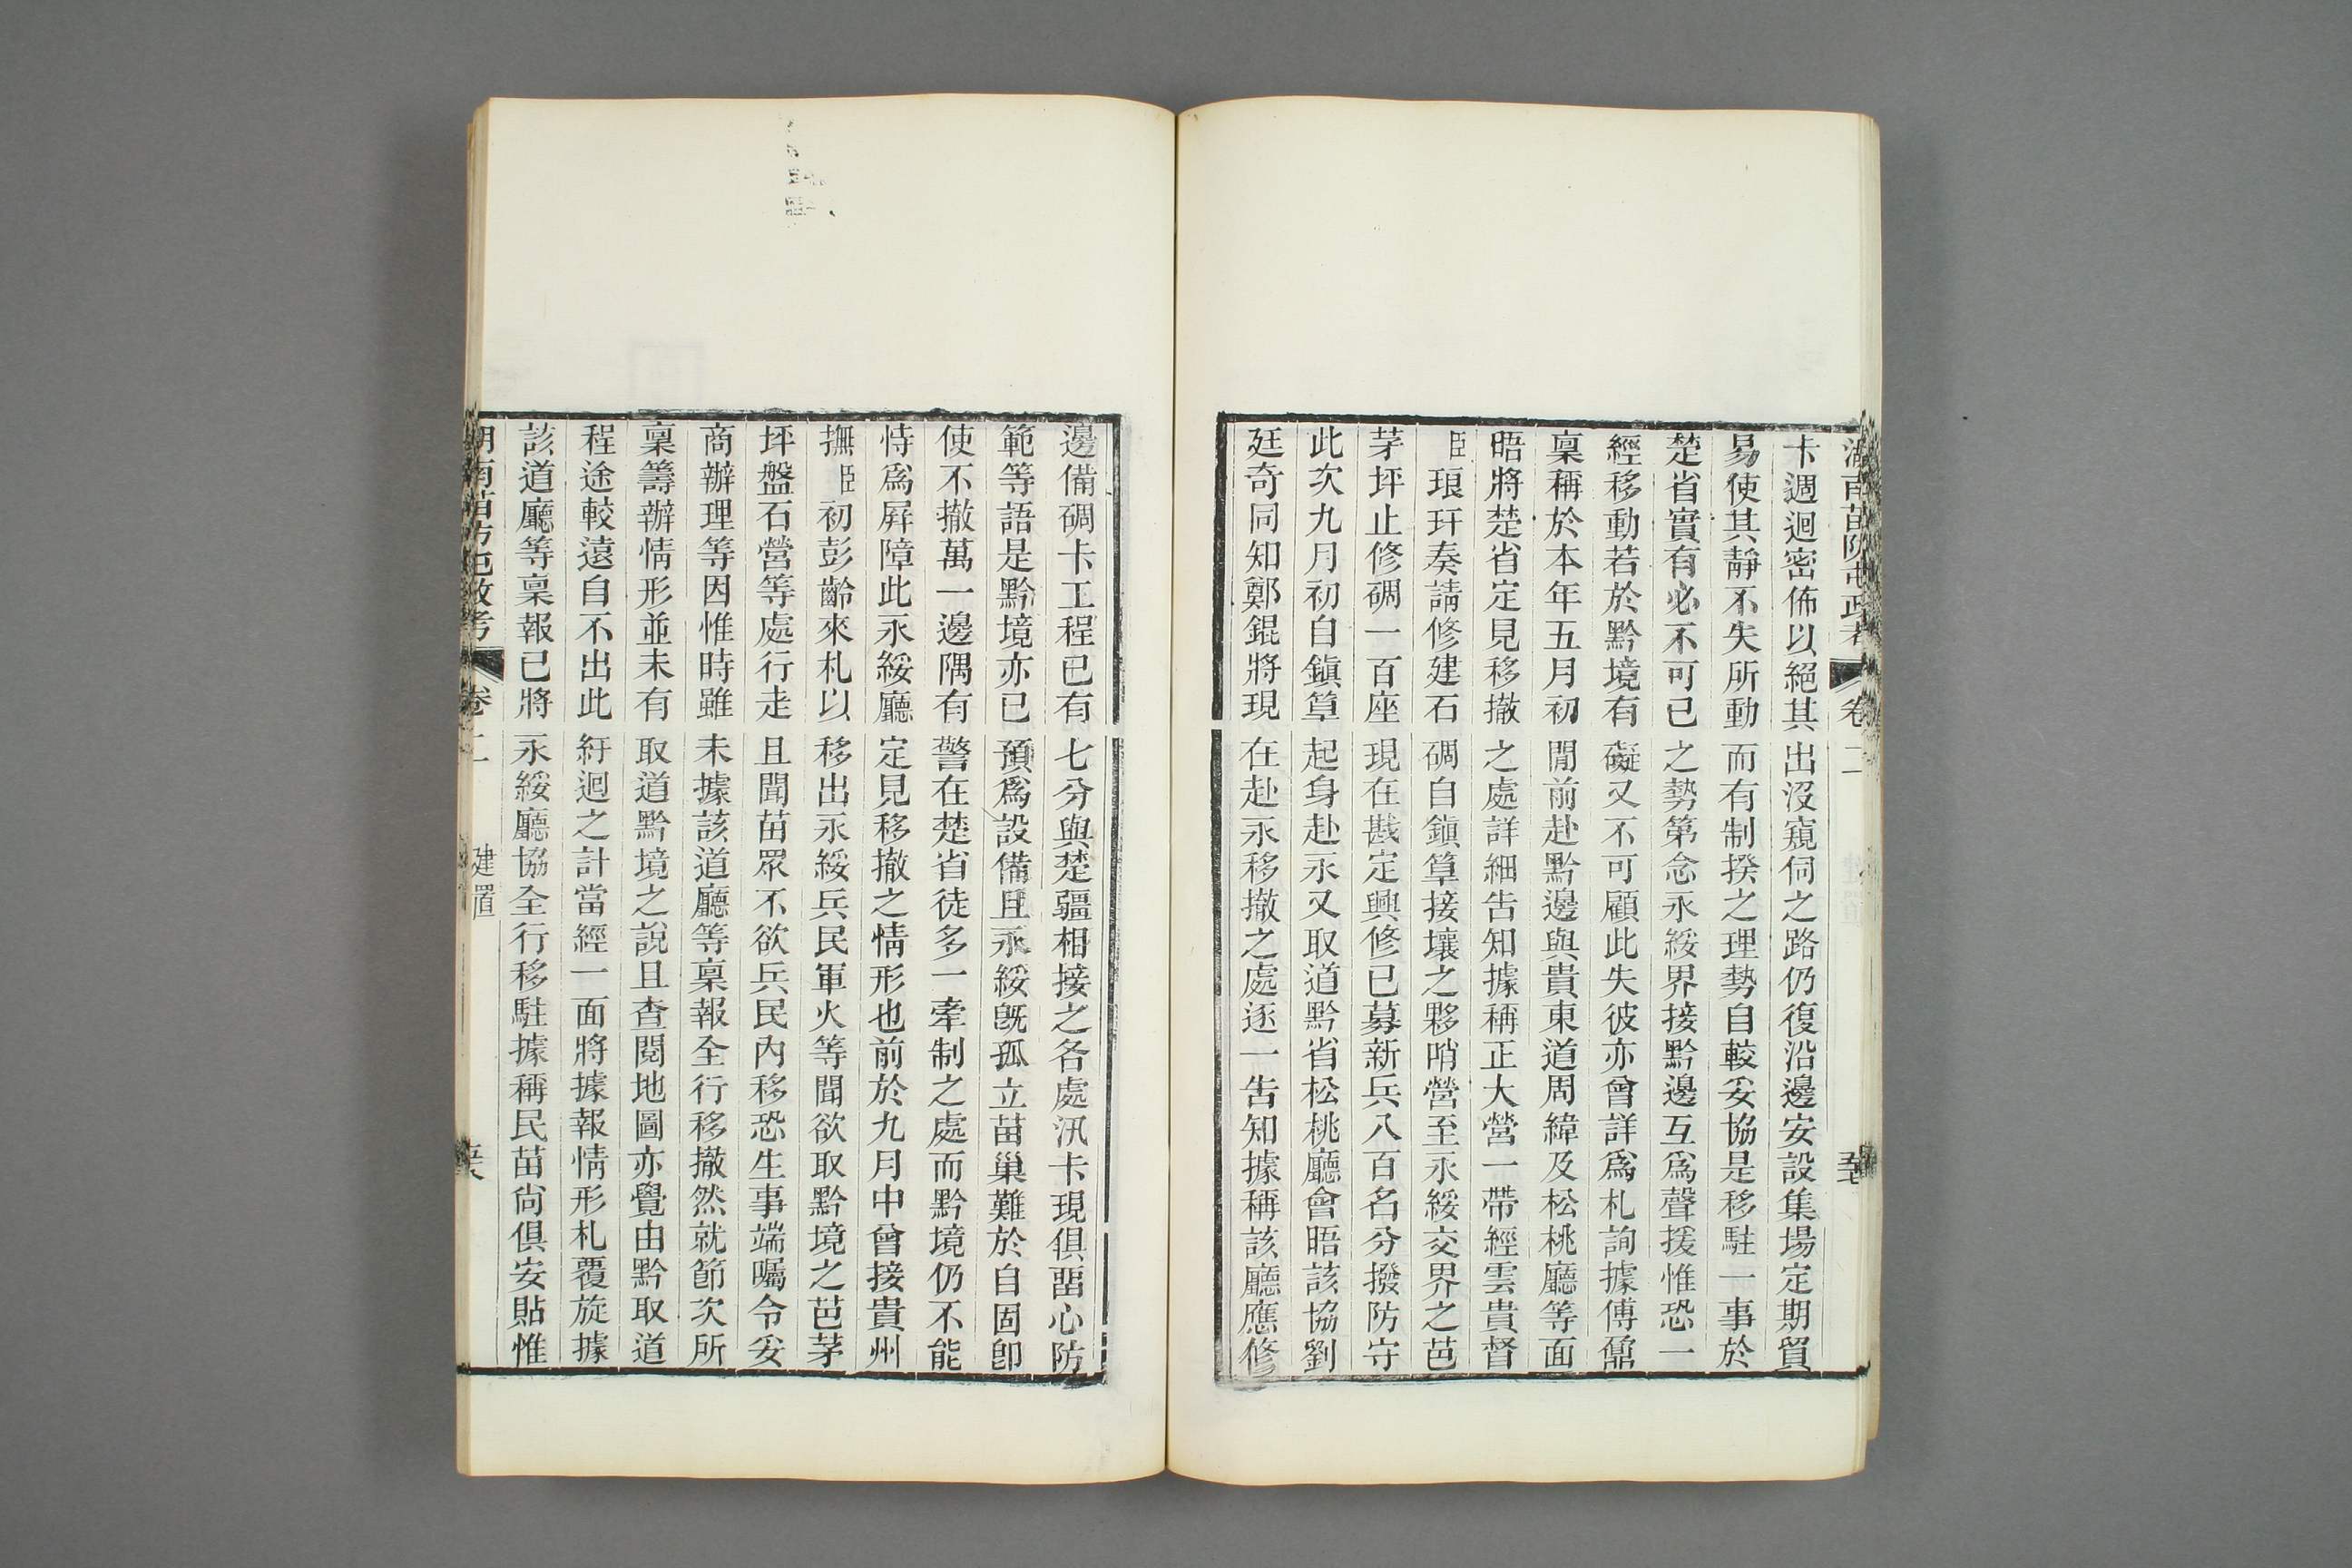 湖南苗防屯政考 卷二 至
卡週迴密佈以絕其出沒窺伺之路仍復沿邊安設集場定期貿
易使其靜不失所動而有制揆之理勢自較妥協是移駐一事於
楚省實有必不可已之勢第念永綏界接黔邊互爲聲援惟恐一
經移動若於黔境有礙又不可顧此失彼亦曾詳爲札詢據傅鼐
稟稱於本年五月初間前赴黔邊與貴東道周緯及松桃廳等面
晤將楚省定見移撤之處詳細告知據稱正大營一帶經雲貴督
臣琅玕奏請修建石碉自鎭筸接壤之夥哨營至永綏交界之芭
茅坪止修碉一百座現在戡定興修已募新兵八百名分撥防守
此次九月初自鎭筸起身赴永又取道黔省松桃廳會晤該協劉
廷奇同知鄭錕將現在赴永移撤之處逐一告知據稱該廳應修
邊備碉卡工程已有七分與楚疆相接之各處汛卡現俱畱心防
範等語是黔境亦已預爲設備且永綏旣孤立苗巢難於自固卽
使不撤萬一邊隅有警在楚省徒多一牽制之處而黔境仍不能
恃爲屛障此永綏廳定見移撤之情形也前於九月中曾接貴州
撫臣初彭齡來札以移出永綏兵民軍火等聞欲取黔境之芭茅
坪盤石營等處行走且聞苗眾不欲兵民內移恐生事端囑令妥
商辦理等因惟時雖未據該道廳等稟報全行移撤然就節次所
稟籌辦情形並未有取道黔境之說且查閱地圖亦覺由黔取道
程途較遠自不出此紆迴之計當經一面將據報情形札覆旋據
該道廳等稟報已將永綏廳協全行移駐據稱民苗尙俱安貼惟
湖南苗防屯政考 卷二 建置